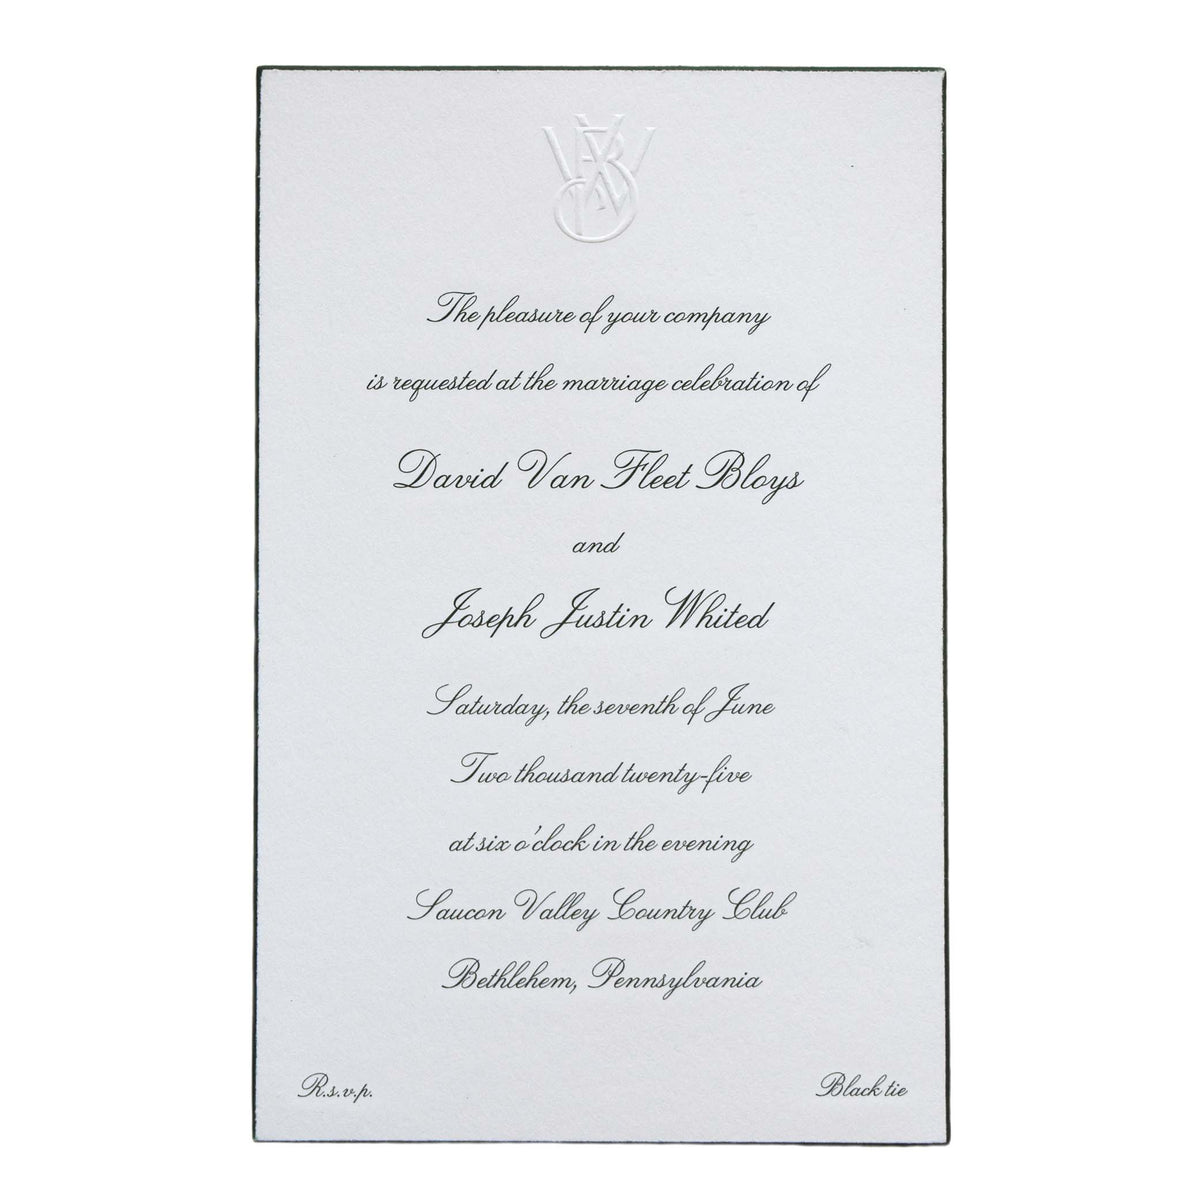 The pleasure of your company
is requested at the marriage celebration of
David Van Fleet Bloys
and
Joseph Justin Whited
Saturday, the seventh of June
Two thousand twenty-five
at six o'clock in the evening
Saucon Valley Country Club
Bethlehem, Pennsylvania
R.s.v.p.
Black tie